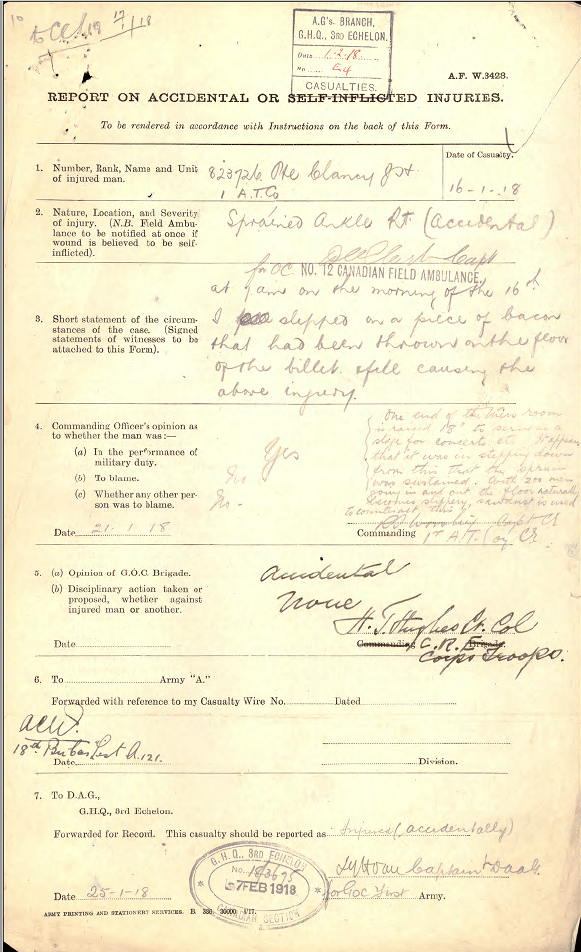 10
17/1/18
A.G's. BRANCH,
G.H.Q., 3RD ECHELON.
Date 1-2-18
No.
CASUALTIES.
A.F. W.3428.
REPORT ON ACCIDENTAL OR SELF-INFLICTED INJURIES.
To be rendered in accordance with Instructions on the back of this Form.
1. Number, Rank, Name and Unit of injured man.
823726 Pte Clancy
1 A.T.Co
Date of Casualty.
16-1-18
2. Nature, Location, and Severity
of injury. (N.B. Field Ambu-
lance to be notified at once if
wound is believed to be self-
inflicted).
Sprained Ankle Rt (accidental)
Capt
for OC NO. 12 CANADIAN FIELD AMBULANCE,
3. Short statement of the circum-
stances of the case. (Signed
statements of witnesses to be
attached to this Form).
at 7am on the morning of the 16th
I slipped on a piece of bacon
that had been thrown on the floor
of the billet. & fell causing the
above injury.
4. Commanding Officer's opinion as
to whether the man was:—
(a) In the performance of
military duty.
Yes
(b) To blame.
No
(c) Whether any other per-
son was to blame.
No -
One end of the Men's room
is raised 18" to serve as a
step for concerts etc It appears
that it was in stepping down
from this that the sprain
was sustained. With 200 men
going in and out the floor naturally
becomes slippery, sawdust is used
to counteract this
Capt CE
Date 21. 1. 18
Commanding 1st A.T. Coy CE
5. (a) Opinion of G.O.C. Brigade.
accidental
(b) Disciplinary action taken or
proposed, whether against
injured man or another.
None
H. T. Hughes Lt. Col
Date
Commanding C.R.E. Brigade.
Corps Troops.
6. To Army "A."
Forwarded with reference to my Casualty Wire No. Dated
18th
A.121.
Date Division.
7. To D.A.G.,
G.H.Q., 3rd Echelon.
Forwarded for Record. This casualty should be reported as Injured (accidentally)
G.H.Q., 3RD ECHELON
No. 18/3675
-7 FEB 1918
CANADIAN SECTION
Captain
Date 25-1-18
for GOC First Army.
ARMY PRINTING AND STATIONERY SERVICES.